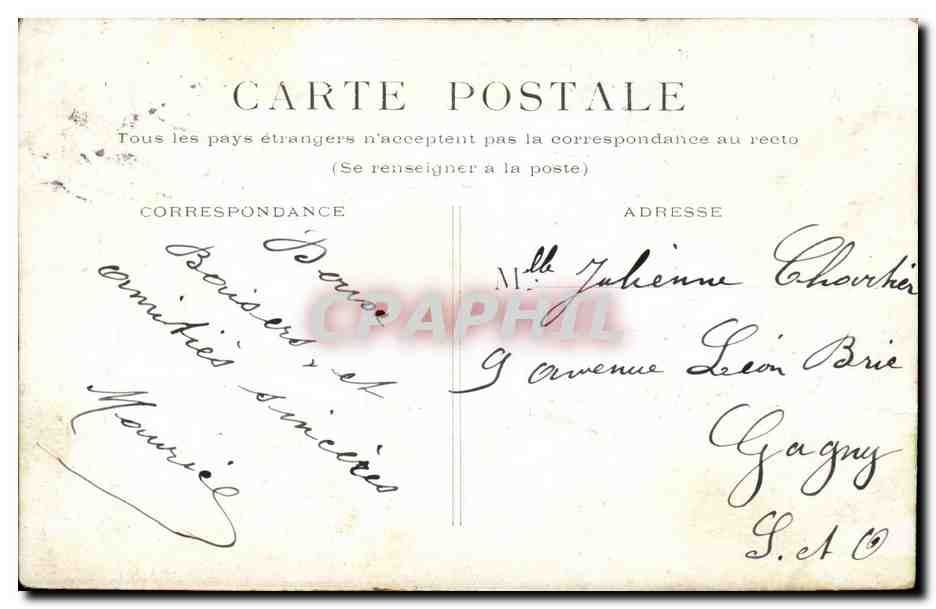 CARTE POSTALE
Tous les pays étrangers n'acceptent pas la correspondance au recto
(Se renseigner à la poste)
CORRESPONDANCE
Doux
Baisers et
amitiés sincères
Mauricel
ADRESSE
Mlle Julienne Chartier
9 avenue Léon Brie
Gagny
S. et O
CPAPHIL